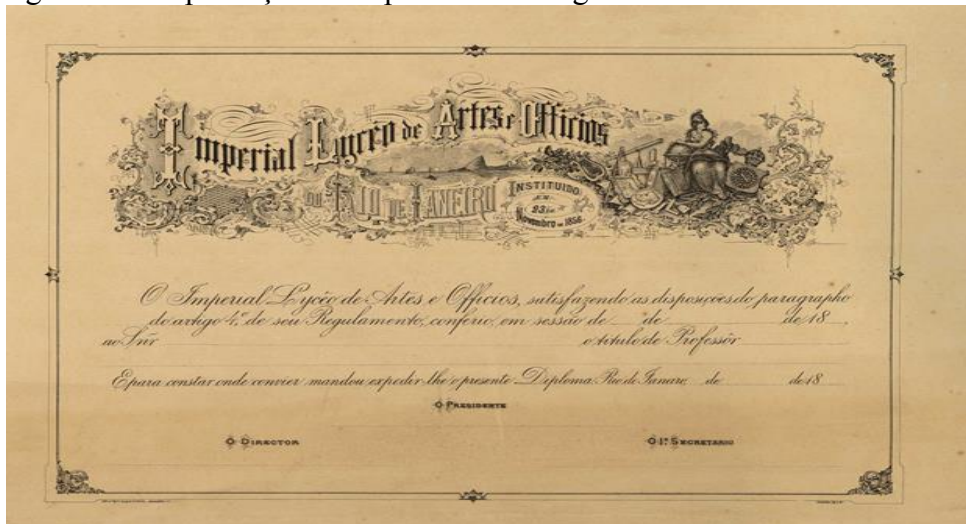 Imperial Lyceo de Artes e Officios
DO RIO DE JANEIRO
INSTITUIDO
EM
23 de
Novembro de 1856
O Imperial Lycêo de Artes e Officios, satisfazendo as disposições do paragrapho
do artigo 4º de seu Regulamento, conferio, em sessão de de de 18 ,
ao Snr o titulo de Professôr
E para constar onde convier mandou expedir-lhe o presente Diploma Rio de Janeiro, de de 18
O PRESIDENTE
O DIRECTOR
O 1º SECRETARIO